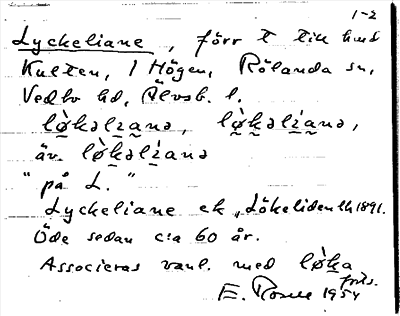 1-2
Lyckeliane, förr t till hmd
Kulten, 1 Högen, Rölanda sn,
Vedbo hd, Älvsb. l.
lø̀kəlɩana, lø̀kəlɩ́ana,
äv. lòkəlɩ́ana
"på L."
Lyckeliane ek, Lökeliden Lh 1891.
Öde sedan c:a 60 år.
Associeras vanl. med lø̀ka
forts.
E. Rosell 1954